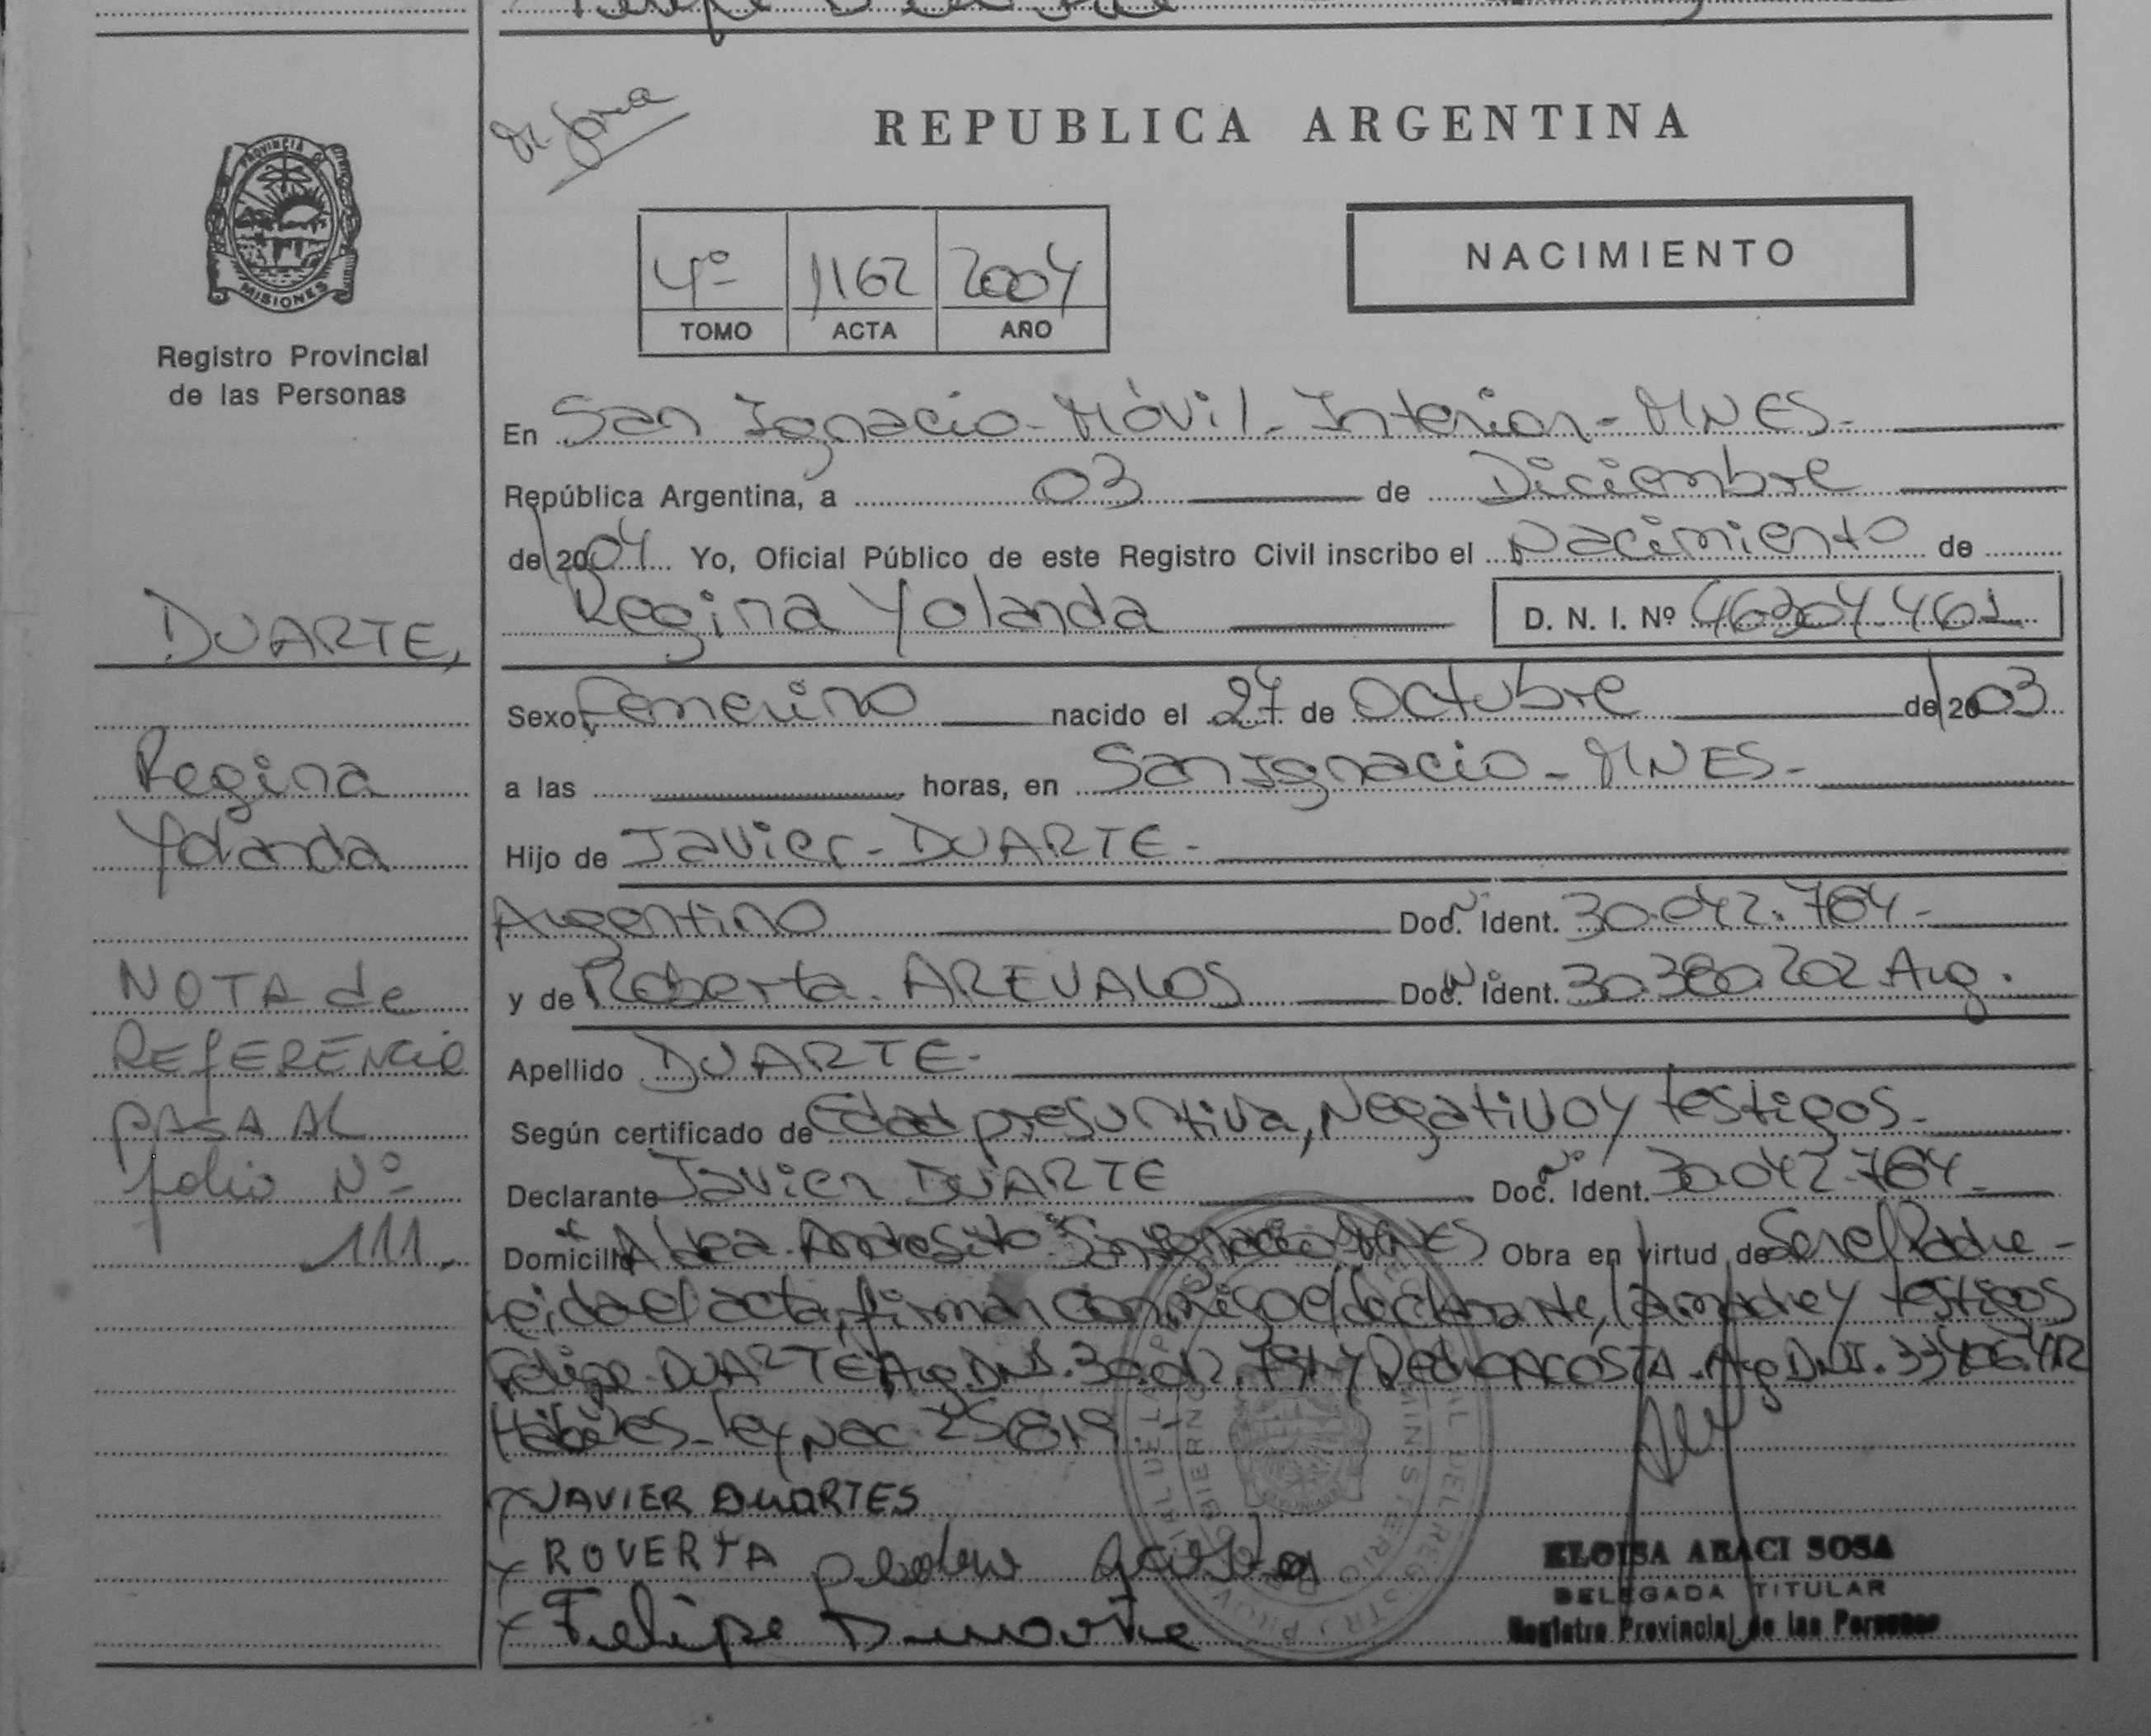 PROVINCIA D
MISIONES
Registro Provincial
de las Personas
DUARTE,
Regina
Yolanda
NOTA de
REFERENCIA
PASA AL
folio Nº
111.
REPUBLICA ARGENTINA
4º 1162 2004
TOMO ACTA AÑO
NACIMIENTO
En San Ignacio - Móvil - Interior - MNES -
República Argentina, a 03 de Diciembre
de 2004 Yo, Oficial Público de este Registro Civil inscribo el Nacimiento de
Regina Yolanda D. N. I. Nº 46304.461
Sexo Femenino nacido el 27 de Octubre de 2003
a las horas, en San Ignacio - MNES -
Hijo de Javier - DUARTE -
Argentino Doc. Nº Ident. 30.042.764 -
y de Roberta AREVALOS Doc. Nº Ident. 30.380.202 Arg.
Apellido DUARTE -
Según certificado de Edad presuntiva, Negativo y testigos -
Declarante Javier DUARTE Doc. Nº Ident. 30.042.764 -
Domicilio Aldea Andresito San Ignacio MNES Obra en virtud de Ser el Padre -
Leida el acta, firman conmigo el declarante, la madre y testigos
Felipe DUARTE Arg. D.N.I. 30.042. y Pedro ACOSTA - Arg D.N.I. 33
Hábiles - ley Nac. 25819
JAVIER DUARTES
ROVERTA pedro
Felipe Duarte
ELOISA ARACI SOSA
DELEGADA TITULAR
Registro Provincial de las Personas